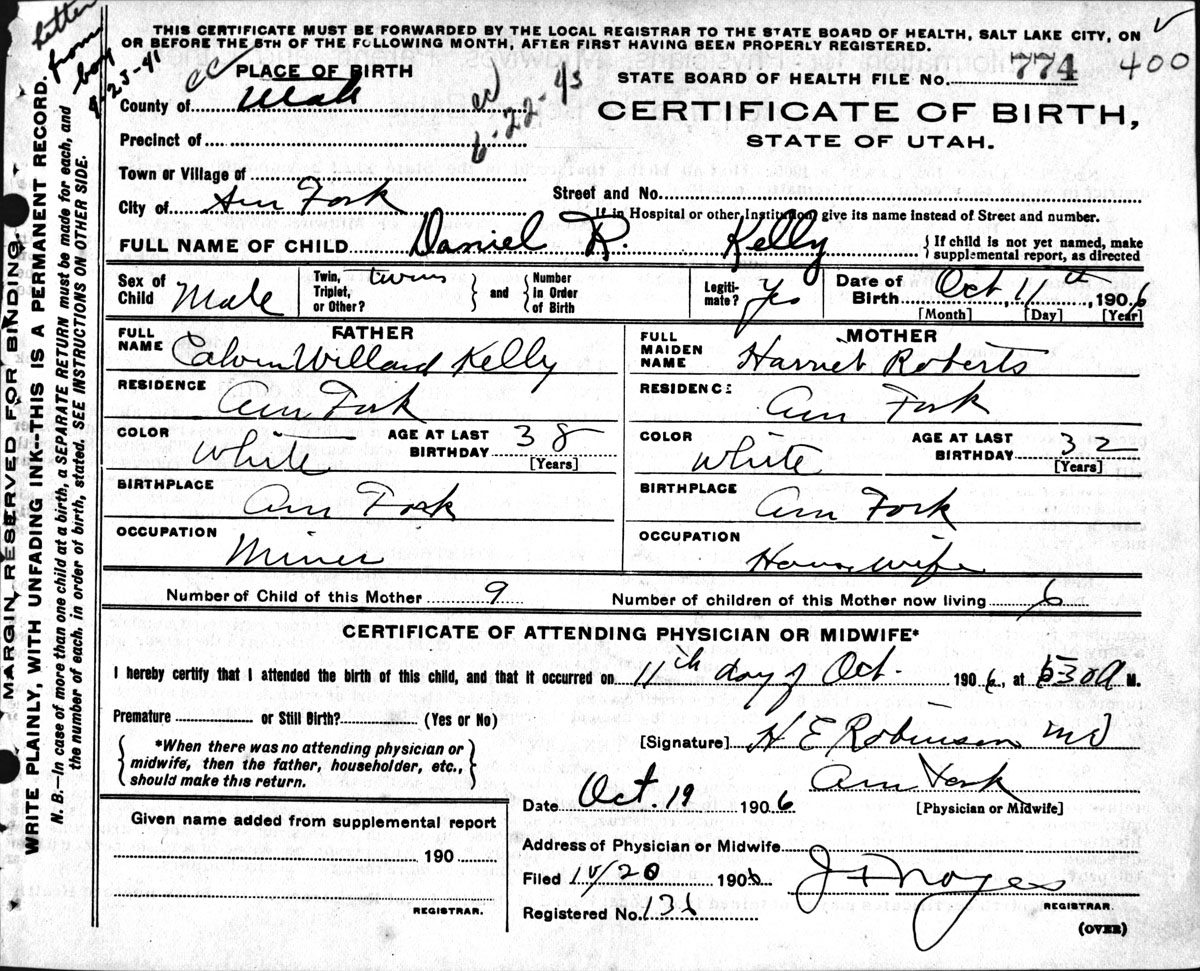 THIS CERTIFICATE MUST BE FORWARDED BY THE LOCAL REGISTRAR TO THE STATE BOARD OF HEALTH, SALT LAKE CITY, ON
OR BEFORE THE 5TH OF THE FOLLOWING MONTH, AFTER FIRST HAVING BEEN PROPERLY REGISTERED.
letter
from
boy
9-23-41
PLACE OF BIRTH
STATE BOARD OF HEALTH FILE NO. 774 400
County of Utah
6-22-43
CERTIFICATE OF BIRTH,
STATE OF UTAH.
Precinct of
Town or Village of
Street and No.
City of Am Fork
If in Hospital or other Institution, give its name instead of Street and number.
FULL NAME OF CHILD Daniel R. Kelly
{If child is not yet named, make
supplemental report, as directed
Sex of Child Male
Twin, Triplet, or Other? twins } and { Number in Order of Birth
Legiti-mate? Yes
Date of Birth Oct 11th, 1906
[Month] [Day] [Year]
FATHER
FULL NAME Calvin Willard Kelly
MOTHER
FULL MAIDEN NAME Harriet Roberts
RESIDENCE Am Fork
RESIDENCE Am Fork
COLOR White AGE AT LAST BIRTHDAY 38 [Years]
COLOR White AGE AT LAST BIRTHDAY 32 [Years]
BIRTHPLACE Am Fork
BIRTHPLACE Am Fork
OCCUPATION Miner
OCCUPATION House wife
Number of Child of this Mother 9 Number of children of this Mother now living 6
CERTIFICATE OF ATTENDING PHYSICIAN OR MIDWIFE*
I hereby certify that I attended the birth of this child, and that it occurred on 11th day of Oct. 1906, at 530 A M.
Premature or Still Birth? (Yes or No)
{*When there was no attending physician or
midwife, then the father, householder, etc.,
should make this return.}
[Signature] H E Robinson MD
Am Fork
[Physician or Midwife]
Date Oct. 19 1906
Given name added from supplemental report
190
REGISTRAR.
Address of Physician or Midwife
Filed 10/20 1906 J F Noyes
REGISTRAR.
Registered No. 136
(OVER)
MARGIN RESERVED FOR BINDING.
WRITE PLAINLY, WITH UNFADING INK--THIS IS A PERMANENT RECORD.
N. B.—In case of more than one child at a birth, a SEPARATE RETURN must be made for each, and
the number of each, in order of birth, stated. SEE INSTRUCTIONS ON OTHER SIDE.